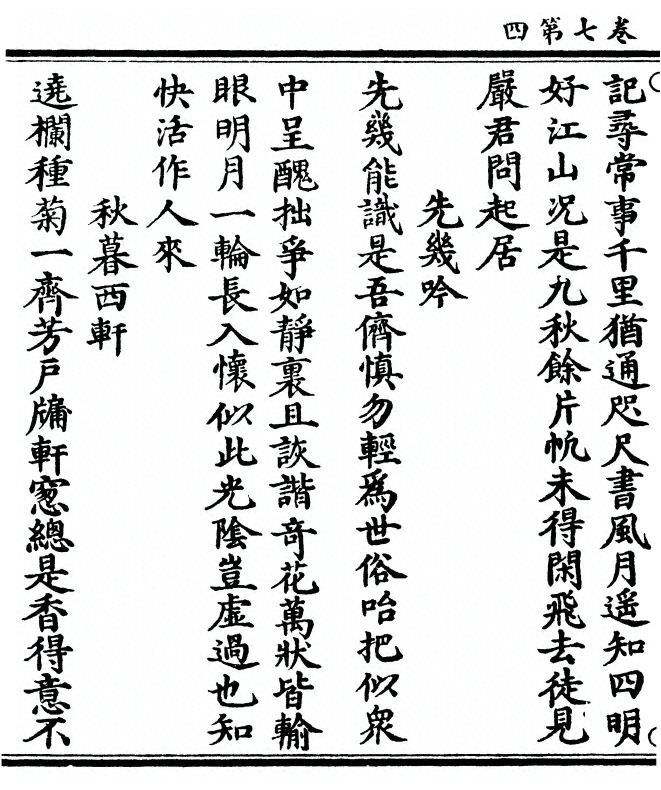 四第七卷
記尋常事千里猶通咫尺書風月遥知四明
好江山况是九秋餘片帆未得閑飛去徒見
嚴君問起居
先幾吟
先幾能識是吾儕慎勿輕爲世俗咍把似衆
中呈醜拙爭如静裏且詼諧奇花萬狀皆輸
眼明月一輪長入懷似此光陰豈虚過也知
快活作人來
秋暮西軒
遶欄種菊一齊芳戸牖軒窻總是香得意不